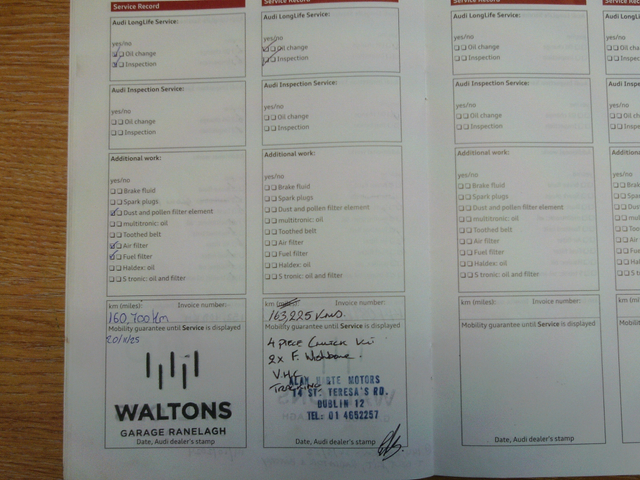 Service Record
Audi LongLife Service:
yes/no
Oil change
Inspection
Audi Inspection Service:
yes/no
Oil change
Inspection
Additional work:
yes/no
Brake fluid
Spark plugs
Dust and pollen filter element
multitronic: oil
Toothed belt
Air filter
Fuel filter
Haldex: oil
S tronic: oil and filter
km (miles): Invoice number:
160,700 Km
Mobility guarantee until Service is displayed
WALTONS
GARAGE RANELAGH
Date, Audi dealer's stamp
Service Record
Audi LongLife Service:
yes/no
Oil change
Inspection
Audi Inspection Service:
yes/no
Oil change
Inspection
Additional work:
yes/no
Brake fluid
Spark plugs
Dust and pollen filter element
multitronic: oil
Toothed belt
Air filter
Fuel filter
Haldex: oil
S tronic: oil and filter
km (miles): Invoice number:
163,225 Kms.
Mobility guarantee until Service is displayed
4 Piece Clutch Kit
2x F. Wishbone.
V.H.C
MOTORS
14 ST. TERESA'S RD.
DUBLIN 12
TEL: 01 4652257
Date, Audi dealer's stamp
Service Record
Audi LongLife Service:
yes/no
Oil change
Inspection
Audi Inspection Service:
yes/no
Oil change
Inspection
Additional work:
yes/no
Brake fluid
Spark plugs
Dust and pollen filter element
multitronic: oil
Toothed belt
Air filter
Fuel filter
Haldex: oil
S tronic: oil and filter
km (miles): Invoice number:
Mobility guarantee until Service is displayed
Date, Audi dealer's stamp